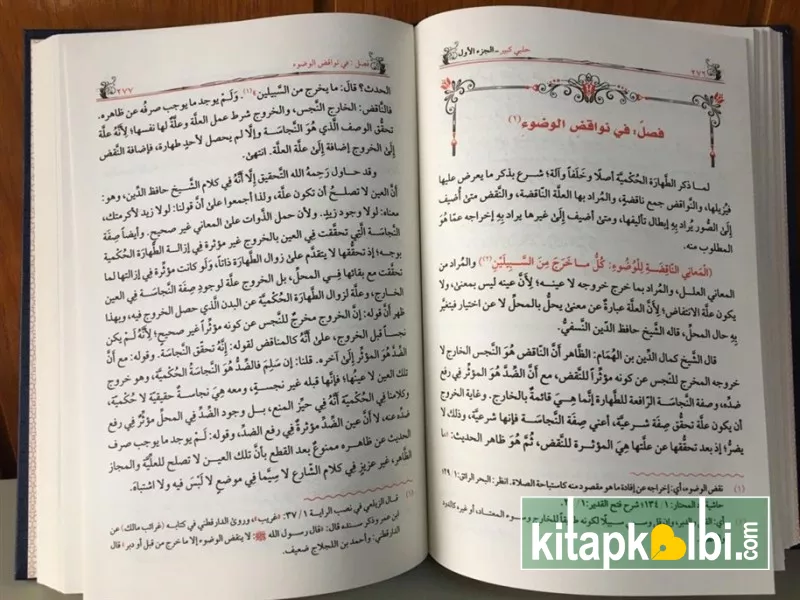 ٢٧٦
حلبي كبير - الجزء الأول
فصلٌ: في نواقض الوضوء (١)
لما ذكر الطَّهارة الحُكميَّة أصلًا وخَلَفاً وآلة؛ شرع يذكر ما يعرض عليها
فيُزيلها، والنَّواقض جمع ناقضةٍ، والمُراد بها العلَّة النَّاقضة، والنَّقض متىٰ أُضيف
إلىٰ الصُّور يُراد به إبطال تأليفها، ومتىٰ أُضيف إلىٰ غيرها يراد به إخراجه عمَّا هُوَ
المطلوب منه.
(المَعاني النَّاقِضة لِلوُضُوءِ: كُلُّ ما خَرَجَ مِنَ السَّبِيلَيْنِ (٢)) والمُراد من
المعاني العلل، والمُراد بما خرج خروجه لا عينه؛ لأنَّ عينه ليس بمعنىٰ، ولا
يكون علَّة الانتقاض؛ لأنَّ العلَّة عبارةٌ عن معنىً يحلُّ بالمحلِّ لا عن اختيار فيتغيَّر
بِهِ حال المحلِّ، قاله الشَّيخ حافظ الدِّين النَّسفيُّ.
قال الشَّيخ كمال الدِّين بن الهُمَام: الظَّاهر أنَّ النَّاقض هُوَ النَّجس الخارج لا
خروجه المخرج للنَّجس عن كونه مؤثِّراً للنَّقض، مع أنَّ الضِّدَّ هُوَ المؤثِّر في رفع
ضدِّه، وصفة النَّجاسة الرَّافعة للطَّهارة إنَّما هِيَ قائمةٌ بالخارج. وغاية الخروج
أن يكون علَّة تحقُّق صفةٍ شرعيَّة، أعني صفة النَّجاسة فإنها شرعيَّة، وذلك لا
يضرُّ؛ إذ بعد تحقُّقها عن علَّتها هِيَ المؤثِّرة للنَّقض، ثُمَّ هُوَ ظاهر الحديث: «ما
(١) نقض الوضوء، أي: إخراجه عن إفادة ما هو مقصود منه كاستباحة الصلاة. انظر: البحر الرائق: ١/ ٢٩؛
حاشية المحتار: ١/ ١٣٤؛ شرح فتح القدير: ١/
فصل: في نواقض الوضوء
٢٧٧
الحدث؟ قال: ما يخرج من السَّبيلين» (١). وَلَمْ يوجد ما يوجب صرفُه عن ظاهره.
فالنَّاقض: الخارج النَّجس، والخروج شرط عمل العلَّة وعلَّةٌ لها نفسها؛ لأنَّهُ علَّة
تحقُّق الوصف الَّذي هُوَ النَّجاسة وإلَّا لم يحصل لأحدٍ طهارة، فإضافة النَّقض
إلىٰ الخروج إضافة إلىٰ علَّة العلَّة. انتهىٰ.
وقد حاول رَحِمَهُ الله التَّحقيق إلَّا أنَّهُ في كلام الشَّيخ حافظ الدِّين، وهو:
أنَّ العين لا تصلحُ أن تكون علَّة، ولذا اجمعوا علىٰ أنَّ قولنا: لولا زيد لأكرمتك،
معناه: لولا وجود زيدٍ. ولأن حمل الذَّوات علىٰ المعاني غير صحيح. وأيضاً صِفَة
النَّجاسة الَّتي تحقَّقت في العين بالخروج غير مؤثِّرة في إزالة الطَّهارة الحُكميَّة
بوجه؛ إذ تحقُّقها لا يتقدَّم علىٰ زوال الطَّهارة ذاتاً، وَلَو كانت مؤثِّرة في إزالتها لما
تحقَّقت مع بقائها في المحلِّ، بل الخروج علَّة لوجودِ صِفَة النَّجاسة في العين
الخارج، وعلَّة لزوال الطَّهارة الحُكميَّة عن البدن الَّذي حصل الخروج فيه، وبهذا
ظهر أنَّ قوله: إنَّ الخروج مخرجٌ للنَّجس عن كونه مؤثِّراً غير صحيح؛ لأنَّهُ لَمْ يكن
نجساً قبل الخروج، علىٰ أنَّهُ كالمناقض لقوله: إنَّهُ تحقق النَّجاسة. وقوله: مع أنَّ
الضِّدَّ هُوَ المؤثِّر إلىٰ آخره. قلنا: إن سَلِمَ فالضِّدُّ هُوَ النَّجاسةُ الحُكميَّة، وهو خروج
تلك العين لا عينُها؛ فإنَّها قبله غير نجسة، ومعه هِيَ نجاسةٌ حقيقيَّة لا حُكميَّة،
وكلامنا في الحُكميَّة أنَّهُ في حيِّز المنع، بل وجود الضِّدِّ في المحلِّ مؤثِّرٌ في رفع
ضدِّه عنه، لا أنَّ عين الضِّدِّ مؤثِّرةٌ في رفع الضِّدِّ، وقوله: لَمْ يوجد ما يوجب صرف
الحديث عن ظاهره ممنوعٌ بعد القطع بأنَّ تلك العين لا تصلح للعلِّيَّة والمجاز
الظَّاهر، غير عزيزٍ في كلام الشَّارع لا سيَّما في موضعٍ لا لَبْسَ فيه ولا اشتباه.
(١) قال الزيلعي في نصب الراية ١/ ٣٧: «غريب» وروىٰ الدارقطني في كتابه (غرائب مالك) عن
ابن عمر وذكر سنده قال: «قال رسول الله ﷺ: لا ينقض الوضوء إلا ما خرج من قبل أو دبر» قال
الدارقطني: وأحمد بن اللجلاج ضعيف.
kitapkalbi.com